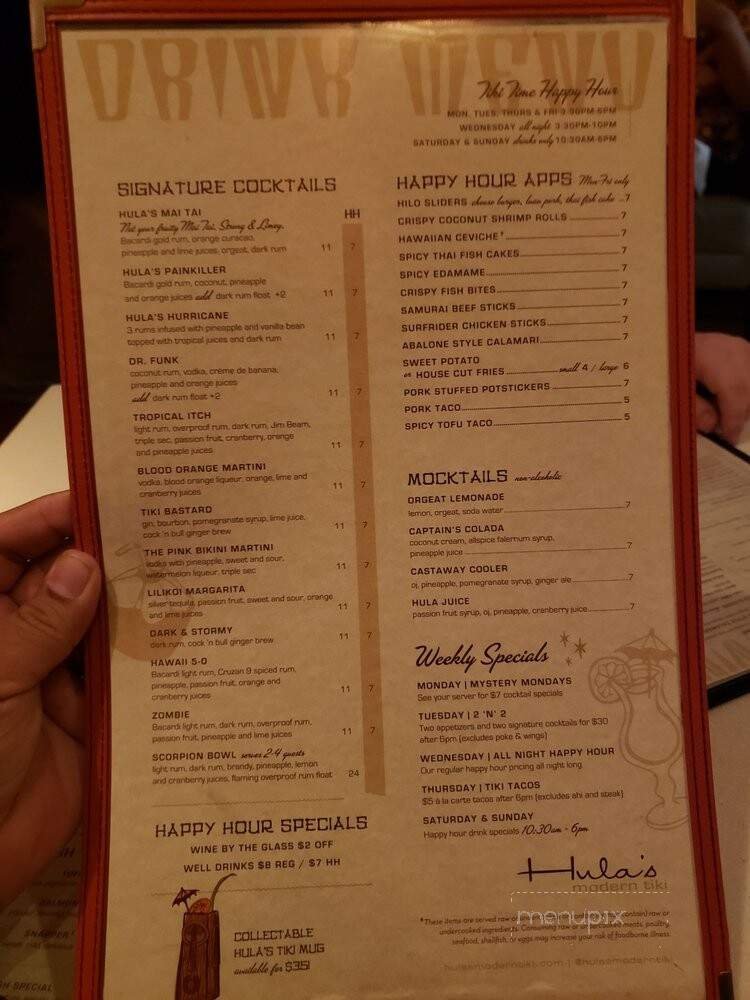 DRINK MENU
Tiki Time Happy Hour
MON, TUES, THURS & FRI 3:30PM-6PM
WEDNESDAY all night 3:30PM-10PM
SATURDAY & SUNDAY drinks only 10:30AM-6PM
SIGNATURE COCKTAILS
HH
HULA'S MAI TAI
Not your fruity Mai Tai, Strong & Limey.
Bacardi gold rum, orange curacao,
pineapple and lime juices, orgeat, dark rum 11 7
HULA'S PAINKILLER
Bacardi gold rum, coconut, pineapple
and orange juices add dark rum float +2 11 7
HULA'S HURRICANE
3 rums infused with pineapple and vanilla bean
topped with tropical juices and dark rum 11 7
DR. FUNK
coconut rum, vodka, crème de banana,
pineapple and orange juices
add dark rum float +2 11 7
TROPICAL ITCH
light rum, overproof rum, dark rum, Jim Beam,
triple sec, passion fruit, cranberry, orange
and pineapple juices 11 7
BLOOD ORANGE MARTINI
vodka, blood orange liqueur, orange, lime and
cranberry juices 11 7
TIKI BASTARD
gin, bourbon, pomegranate syrup, lime juice,
cock 'n bull ginger brew 11 7
THE PINK BIKINI MARTINI
vodka with pineapple, sweet and sour,
watermelon liqueur, triple sec 11 7
LILIKOI MARGARITA
silver tequila, passion fruit, sweet and sour, orange
and lime juices 11 7
DARK & STORMY
dark rum, cock 'n bull ginger brew 11 7
HAWAII 5-0
Bacardi light rum, Cruzan 9 spiced rum,
pineapple, passion fruit, orange and
cranberry juices 11 7
ZOMBIE
Bacardi light rum, dark rum, overproof rum,
passion fruit, pineapple and lime juices 11 7
SCORPION BOWL serves 2-4 guests
light rum, dark rum, brandy, pineapple, lemon
and cranberry juices, flaming overproof rum float 24
HAPPY HOUR SPECIALS
WINE BY THE GLASS $2 OFF
WELL DRINKS $8 REG / $7 HH
COLLECTABLE
HULA'S TIKI MUG
available for $35!
HAPPY HOUR APPS Mon-Fri only
HILO SLIDERS cheese burger, luau pork, thai fish cake ..7
CRISPY COCONUT SHRIMP ROLLS 7
HAWAIIAN CEVICHE* 7
SPICY THAI FISH CAKES 7
SPICY EDAMAME 7
CRISPY FISH BITES 7
SAMURAI BEEF STICKS 7
SURFRIDER CHICKEN STICKS 7
ABALONE STYLE CALAMARI 7
SWEET POTATO
or HOUSE CUT FRIES small 4 / large 6
PORK STUFFED POTSTICKERS 7
PORK TACO 5
SPICY TOFU TACO 5
MOCKTAILS non-alcoholic
ORGEAT LEMONADE
lemon, orgeat, soda water 7
CAPTAIN'S COLADA
coconut cream, allspice falernum syrup,
pineapple juice 7
CASTAWAY COOLER
oj, pineapple, pomegranate syrup, ginger ale 7
HULA JUICE
passion fruit syrup, oj, pineapple, cranberry juice 7
Weekly Specials
MONDAY | MYSTERY MONDAYS
See your server for $7 cocktail specials
TUESDAY | 2 'N' 2
Two appetizers and two signature cocktails for $30
after 6pm (excludes poke & wings)
WEDNESDAY | ALL NIGHT HAPPY HOUR
Our regular happy hour pricing all night long
THURSDAY | TIKI TACOS
$5 à la carte tacos after 6pm (excludes ahi and steak)
SATURDAY & SUNDAY
Happy hour drink specials 10:30am - 6pm
Hula's
modern tiki
menupix
*These items are served raw or contain) raw or
undercooked ingredients. Consuming raw or undercooked meats, poultry,
seafood, shellfish, or eggs may increase your risk of foodborne illness.
hulasmoderntiki.com | @hulasmoderntiki
SNAPPER
SPECIAL